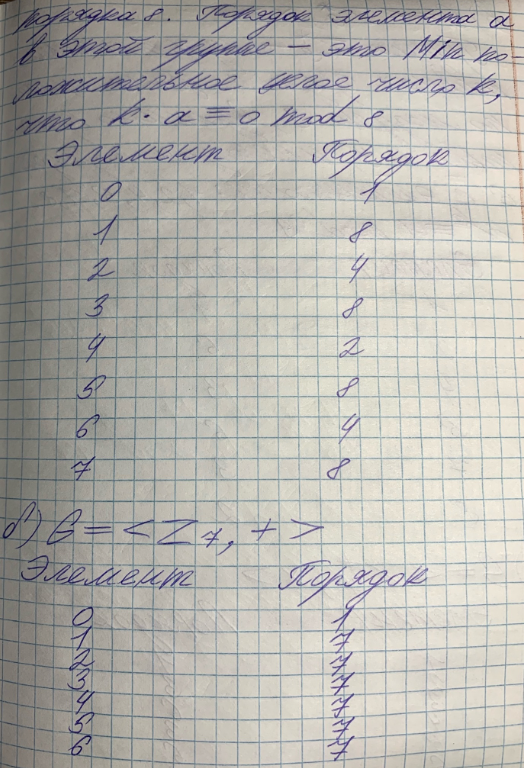 порядка 8. Порядок элемента a
в этой группе – это Min по-
ложительное целое число k,
что k · a ≡ 0 mod 8
Элемент Порядок
0 1
1 8
2 4
3 8
4 2
5 8
6 4
7 8
б) G = < Z 7, + >
Элемент Порядок
0 1
1 7
2 7
3 7
4 7
5 7
6 7